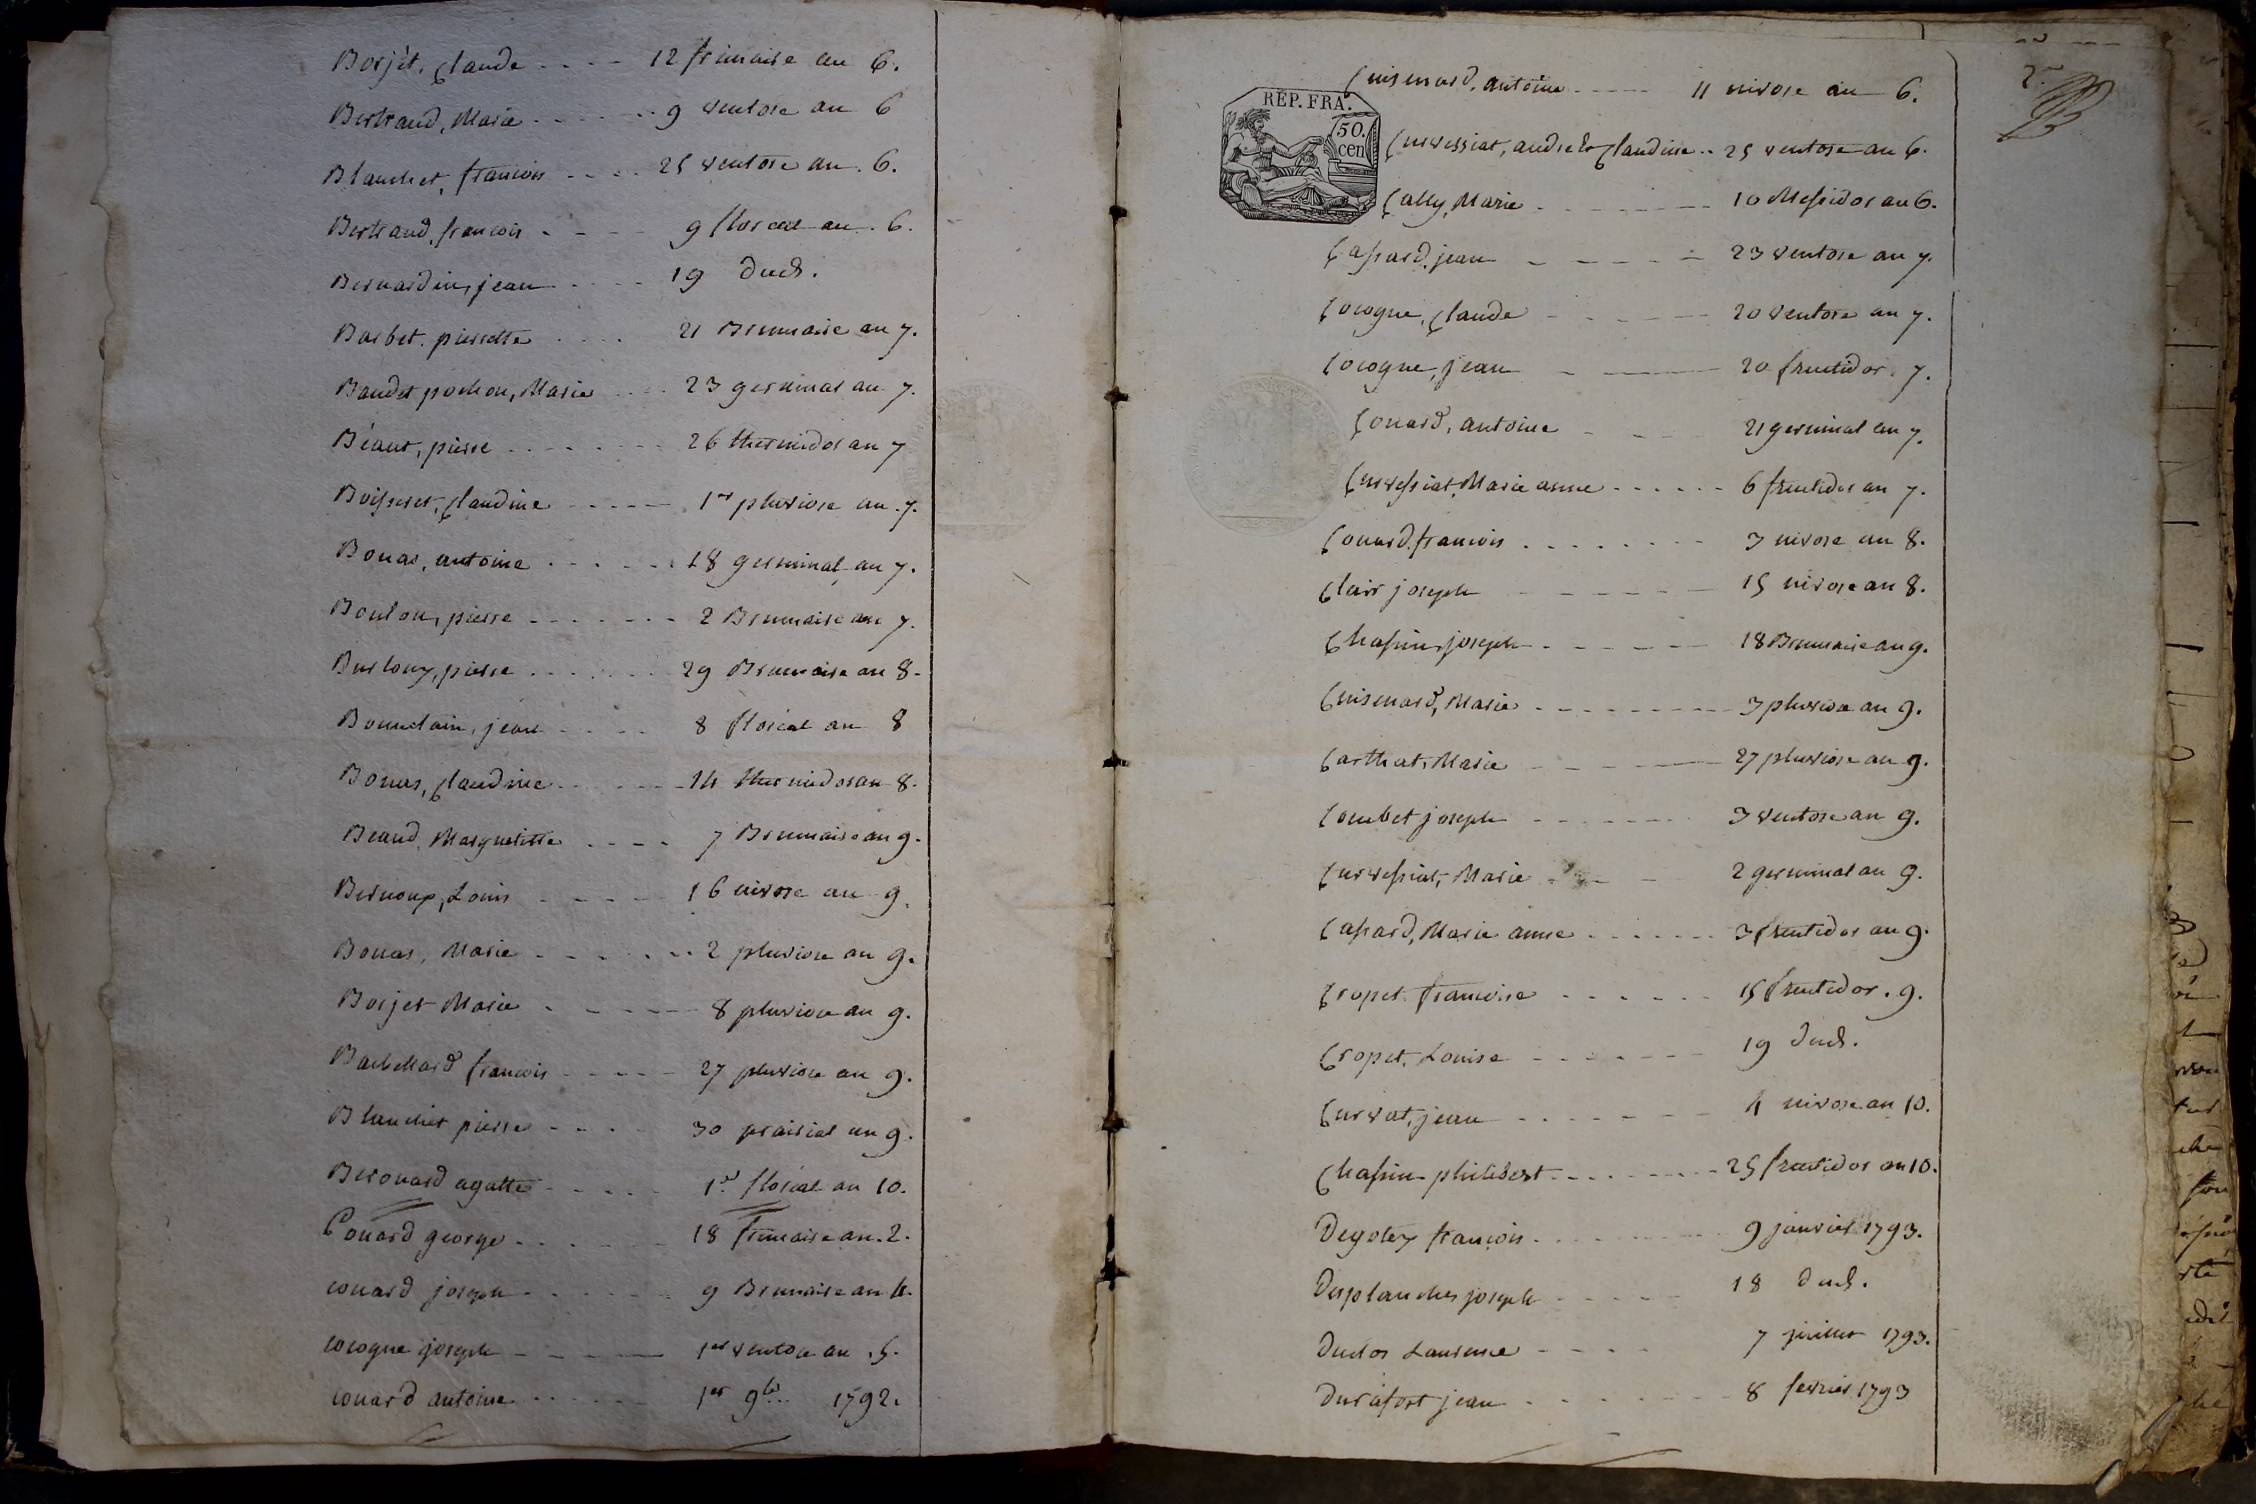 Borjèt, Claude .... 12 frimaire an 6.
Bertrand, Marie ...... 9 ventose an 6
Blanchet, francois .... 25 ventose an 6.
Bertrand, francois .... 9 floreal an 6.
Bernardin, jean .... 19 dud.
Barbet, pierrette .... 21 Brumaire an 7.
Baudet pochon, Marie .... 23 germinal an 7.
Béaut, pierre ...... 26 thermidor an 7
Boisseret, Claudine ..... 1er pluviose an 7.
Bouas, antoine ..... 18 germinal an 7.
Boulon, pierre ....... 2 Brumaire an 7.
Burlouy, pierre ....... 29 Brumaire an 8.
Bourdain, jean ..... 8 floréal an 8
Bouas, Claudine ...... 14 thermidor an 8.
Beaud Marguelitte .... 7 Brumaire an 9.
Bernoux, Louis ..... 16 nivose an 9.
Bouas, Marie ...... 2 pluviose an 9.
Borjet Marie ..... 8 pluviose an 9.
Barbellard francois ..... 27 pluviose an 9.
Blanchet pierre .... 30 prairial an 9.
Berouard agatte ..... 1er floréal an 10.
Couard george ..... 18 frimaire an 2.
couard joseph ...... 9 Brumaire an 4.
cocogne joseph ..... 1er ventose an 5.
couard antoine ..... 1er 9bre 1792.
2e
REP. FRA.
50.
cen
Cuisenard, antoine ..... 11 nivose an 6.
Curvessiat, andre & Claudine .. 25 ventose an 6.
Cally, Marie ....... 10 Messidor an 6.
Cassard, jean ..... 23 ventose an 7.
Cocogne, Claude ..... 20 ventose an 7.
Cocogne, jean ..... 20 fructidor. 7.
Couard, antoine .... 21 germinal an 7.
Curvessiat, Marie anne ...... 6 fructidor an 7.
Couard, francois ........ 3 nivose an 8.
Clair joseph ...... 15 nivose an 8.
Chassin, joseph ...... 18 Brumaire an 9.
Cuisenard, Marie ........ 3 pluviose an 9.
Carthat, Marie ..... 27 pluviose an 9.
Combet joseph ....... 3 ventose an 9.
Curvessiat, Marie .... 2 germinal an 9.
Cassard, Marie anne ....... 3 fructidor an 9.
Cropet francoise ...... 15 fructidor. 9.
Cropet, Louise ....... 19 dud.
Curvat, jean ....... 4 nivose an 10.
Chassin philibert ....... 25 fructidor an 10.
Degoley francois ........ 9 janvier 1793.
Desplanches joseph ..... 18 dud.
Duclos Laurence .... 7 juillet 1793.
Durafort jean ....... 8 fevrier 1793